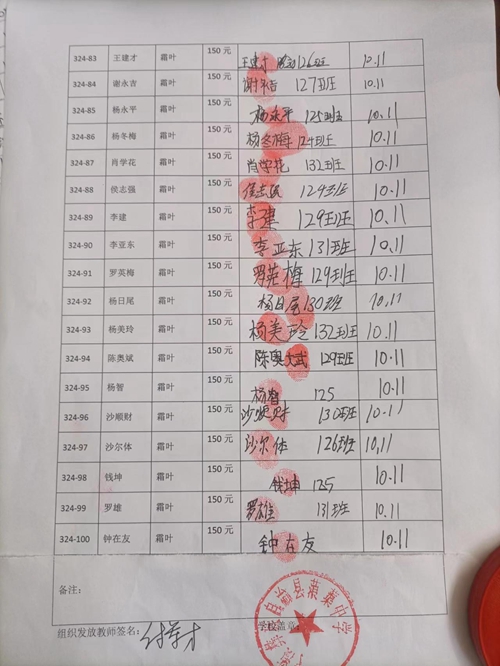 324-83 王建才 霜叶 150 元 王建才 126班 10.11
324-84 谢永吉 霜叶 150 元 谢永吉 127班 10.11
324-85 杨永平 霜叶 150 元 杨永平 125班 10.11
324-86 杨冬梅 霜叶 150 元 杨冬梅 124班 10.11
324-87 肖学花 霜叶 150 元 肖学花 132班 10.11
324-88 侯志强 霜叶 150 元 侯志强 129班 10.11
324-89 李建 霜叶 150 元 李建 129班 10.11
324-90 李亚东 霜叶 150 元 李亚东 131班 10.11
324-91 罗英梅 霜叶 150 元 罗英梅 129班 10.11
324-92 杨日尾 霜叶 150 元 杨日尾 130班 10.11
324-93 杨美玲 霜叶 150 元 杨美玲 132班 10.11
324-94 陈奥斌 霜叶 150 元 陈奥文武 129班 10.11
324-95 杨智 霜叶 150 元 杨智 125 10.11
324-96 沙顺财 霜叶 150 元 沙顺财 130班 10.11
324-97 沙尔体 霜叶 150 元 沙尔体 126班 10.11
324-98 钱坤 霜叶 150 元 钱坤 125 10.11
324-99 罗雄 霜叶 150 元 罗雄 131班 10.11
324-100 钟在友 霜叶 150 元 钟在友 10.11
备注:
组织发放教师签名: 学校盖章
自治县 中学